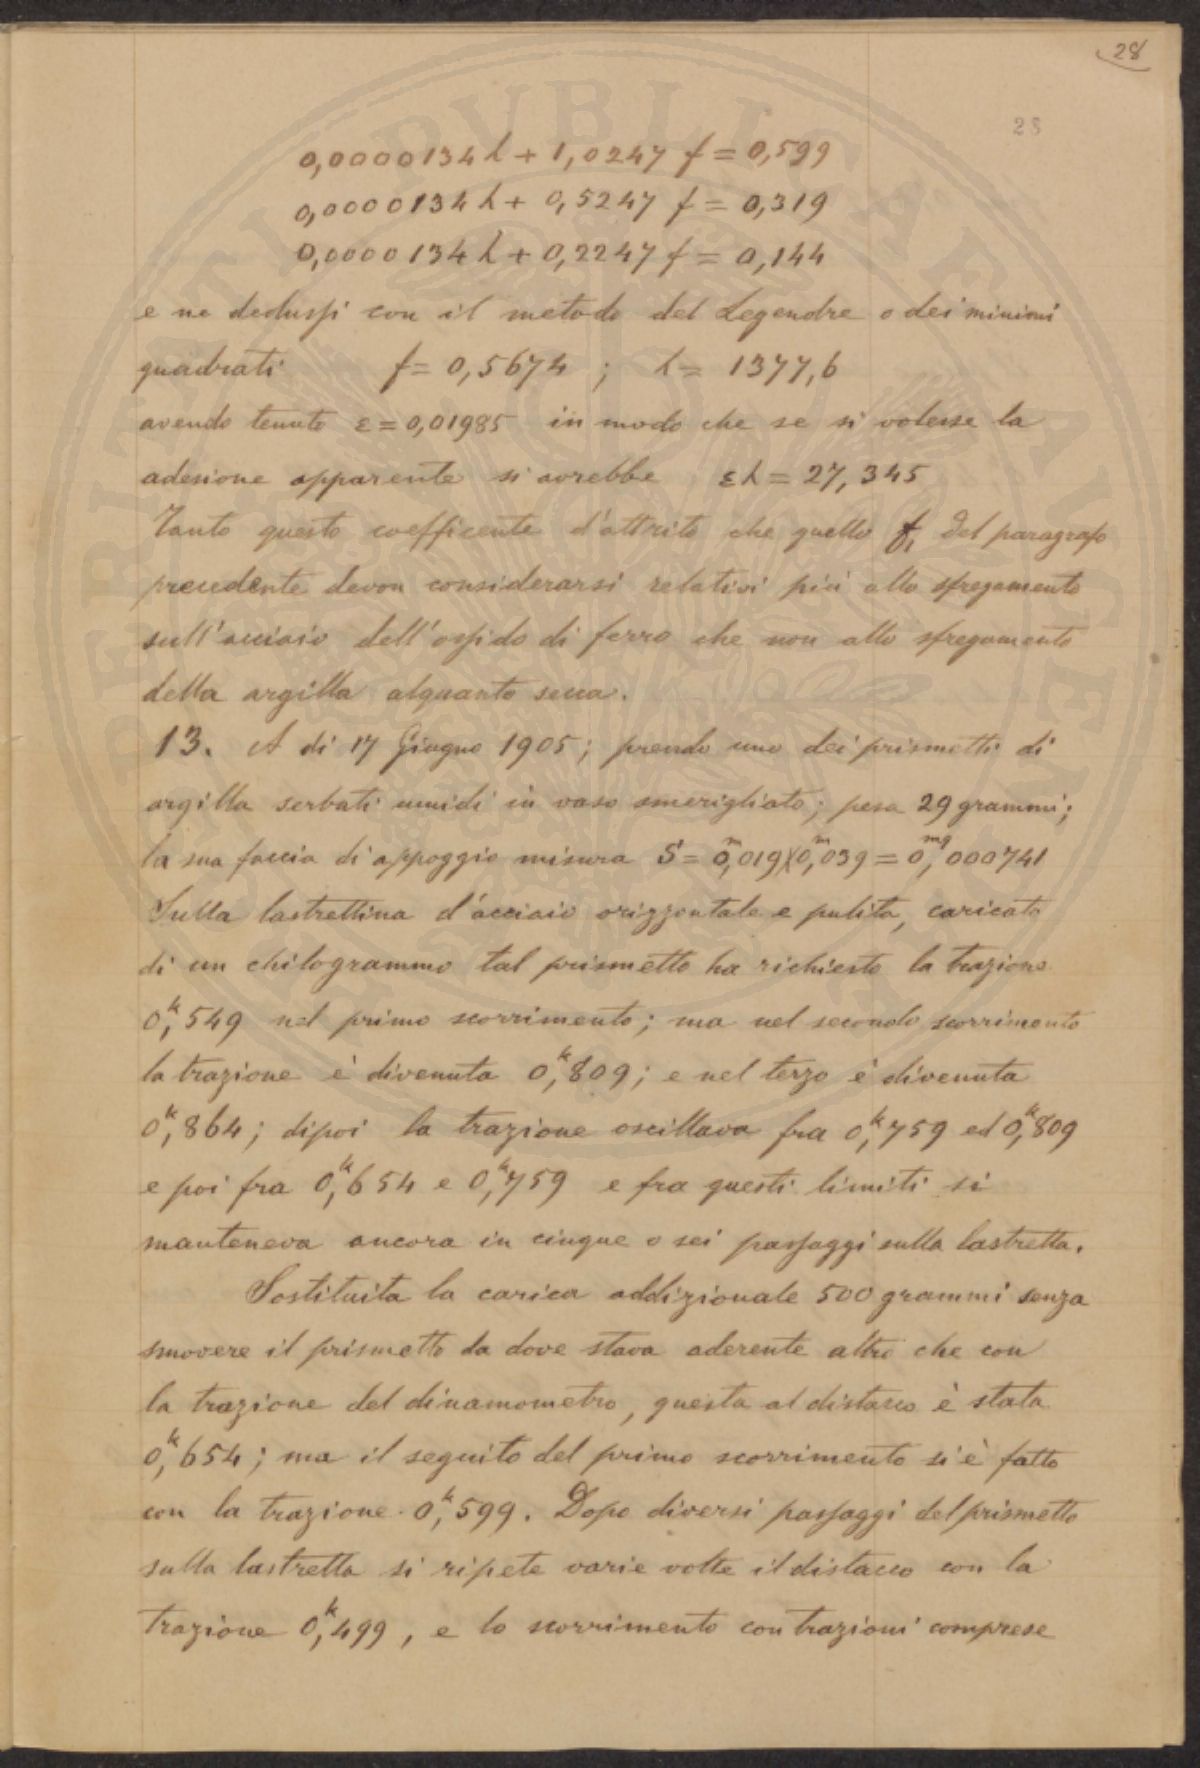 28
28
0,0000134 λ + 1,0247 f = 0,599
0,0000134 λ + 0,5247 f = 0,319
0,0000134 λ + 0,2247 f = 0,144
e ne dedussi con il metodo del Legendre o dei minimi
quadrati f = 0,5674 ; λ = 1377,6
avendo tenuto ε = 0,01985 in modo che se si volesse la
adesione apparente si avrebbe ελ = 27,345
Tanto questo coefficente d'attrito che quello f, del paragrafo
precedente devon considerarsi relativi più allo sfregamento
sull'acciaio dell'ossido di ferro che non allo sfregamento
della argilla alquanto secca.
13. A di 17 Giugno 1905; prendo uno dei prismetti di
argilla serbati umidi in vaso smerigliato; pesa 29 grammi;
la sua faccia di appoggio misura S = 0,ᵐ019 X 0,ᵐ039 = 0,ᵐ𐞥000741
Sulla lastrettina d'acciaio orizzontale e pulita, caricato
di un chilogrammo tal prismetto ha richiesto la trazione
0,ᵏ549 nel primo scorrimento; ma nel secondo scorrimento
la trazione è divenuta 0,ᵏ809; e nel terzo è divenuta
0,ᵏ864; dipoi la trazione oscillava fra 0,ᵏ759 ed 0,ᵏ809
e poi fra 0,ᵏ654 e 0,ᵏ759 e fra questi limiti si
manteneva ancora in cinque o sei passaggi sulla lastretta.
Sostituita la carica addizionale 500 grammi senza
smovere il prismetto da dove stava aderente altro che con
la trazione del dinamometro, questa al distacco è stata
0,ᵏ654; ma il seguito del primo scorrimento si è fatto
con la trazione 0,ᵏ599. Dopo diversi passaggi del prismetto
sulla lastretta si ripete varie volte il distacco con la
trazione 0,ᵏ499, e lo scorrimento con trazioni comprese